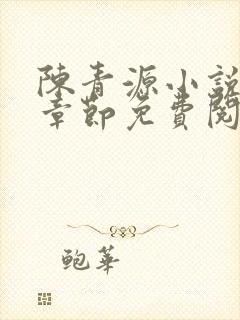 陳青源小說
章節免費閱
鲍華